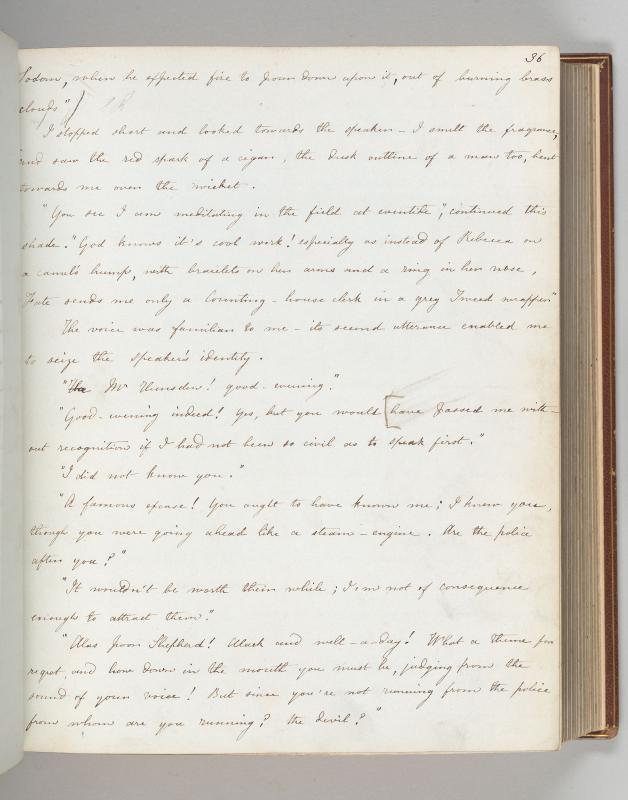 36
Sodom, when he expected fire to pour down upon it, out of burning brass
clouds"
I stopped short and looked towards the speaker - I smelt the fragrance,
and saw the red spark of a cigar, the dusk outline of a man too, bent
towards me over the wicket.
"You see I am meditating in the field at eventide", continued this
shade. "God knows it's cool work! especially as instead of Rebecca on
a camel's hump, with bracelets on her arms and a ring in her nose,
Fate sends me only a Counting-house clerk in a grey Tweed wrapper"
The voice was familiar to me - its second utterance enabled me
to seize the speaker's identity.
"The Mr Hunsden! good-evening."
"Good-evening indeed! Yes, but you would [have passed me with-
out recognition if I had not been so civil as to speak first."
"I did not know you."
"A famous excuse! You ought to have known me; I knew you,
though you were going ahead like a steam-engine. Are the police
after you?"
"It wouldn't be worth their while; I'm not of consequence
enough to attract them."
"Alas poor Shepherd! Alack and well-a-day! What a theme for
regret, and how down in the mouth you must be, judging from the
sound of your voice! But since you're not running from the police
from whom are you running? the devil?"